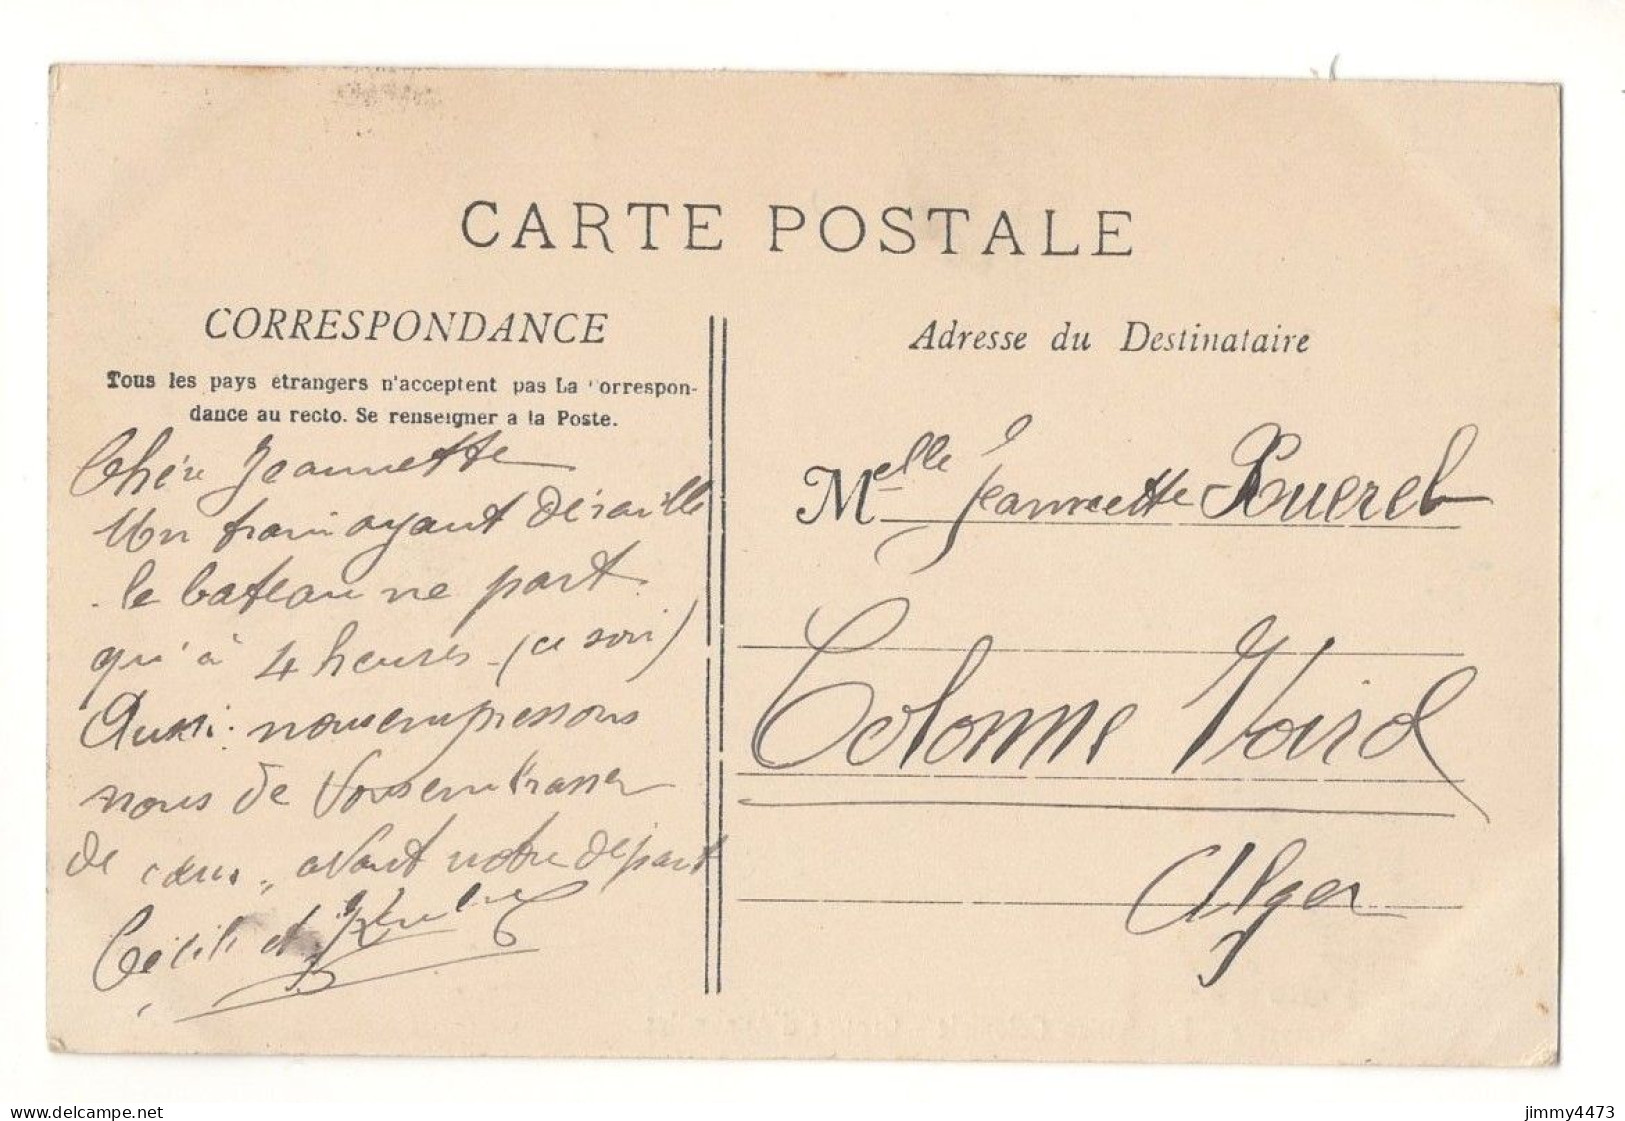 CARTE POSTALE
CORRESPONDANCE
Tous les pays étrangers n'acceptent pas La Correspon-
dance au recto. Se renseigner a la Poste.
Chère Jeannette
Un train ayant déraillé
le bateau ne part
qu'à 4 heures (ce soir)
Aussi nous empressons
nous de vous embrasser
de cœur avant notre départ
Cécile et
Adresse du Destinataire
Melle Jeannette
Colonne Voirol
Alger
delcampe.net
jimmy4473